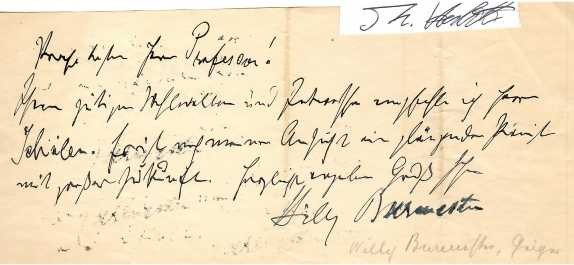 Verehrtester Herr Professor!
Ihrem gütigen Wohlwollen und Interesse empfehle ich Herrn
Er ist nach meiner Ansicht ein glänzender Pianist
mit großer Zukunft. Herzlichst ergebenen Gruß Ihr
Willy Burmester
Willy Burmester, Geiger